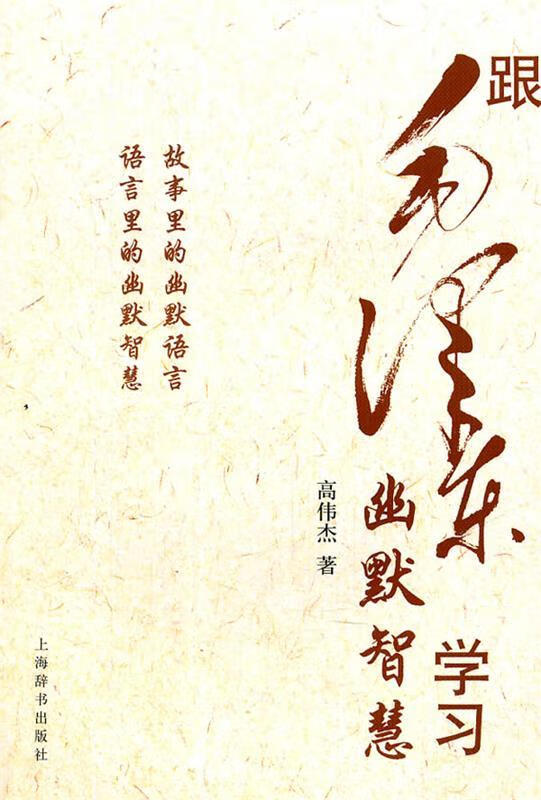 跟
毛泽东
学习
幽默智慧
高伟杰 著
故事里的幽默语言
语言里的幽默智慧
上海辞书出版社